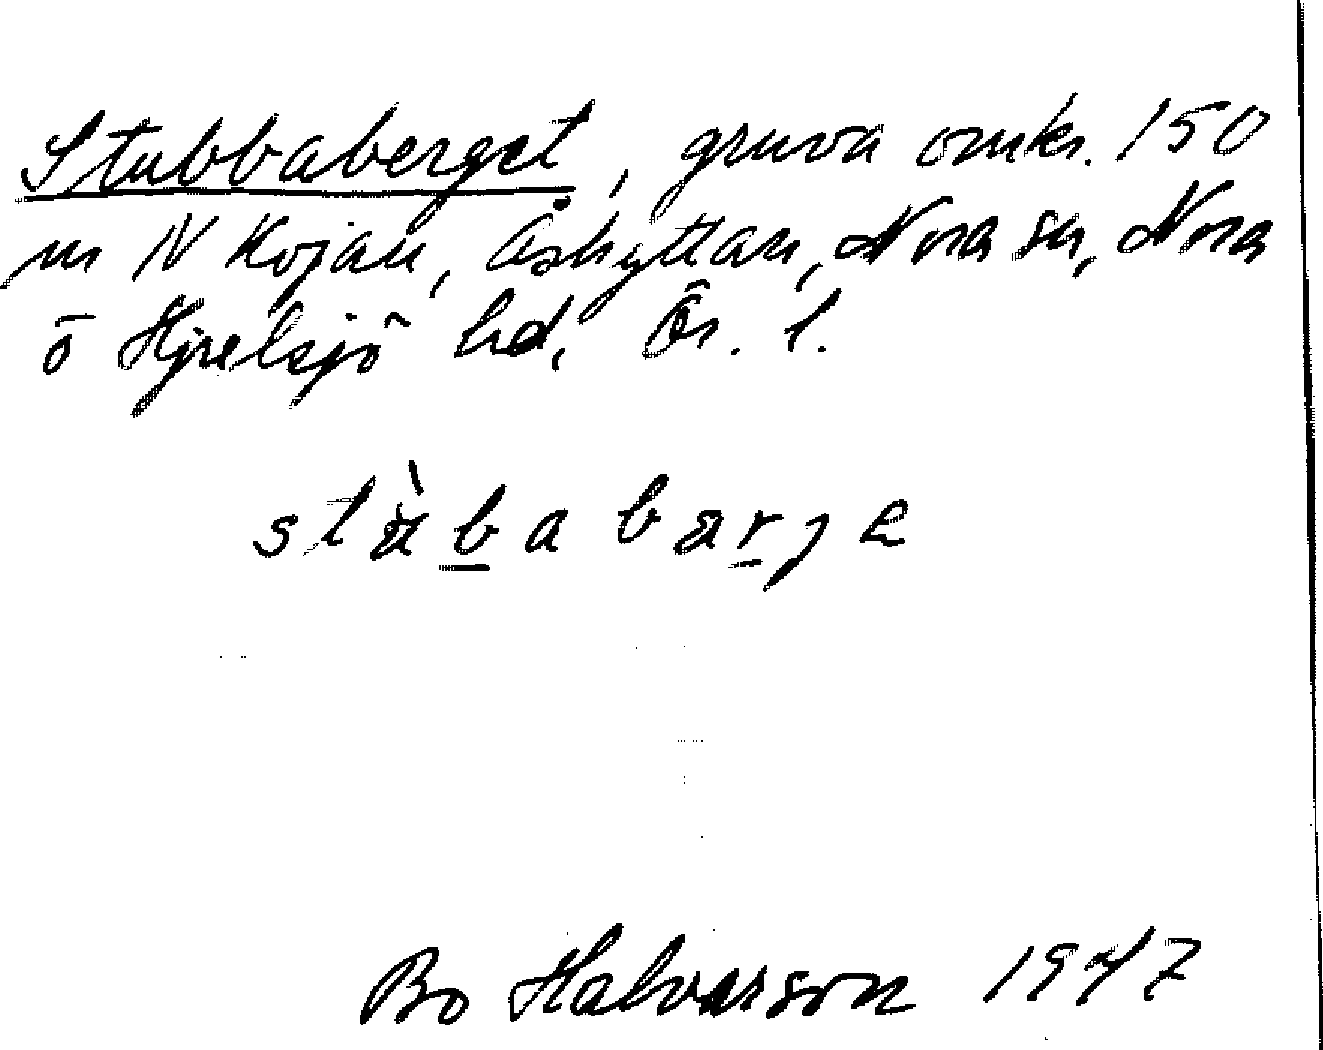 Stubbaberget, gruva omkr. 150
m N Kojan, Åshyttan, Nora sn, Nora
o Hjulsjö hd, Ör. l.
stàbabarje
Bo Halvarson 1947